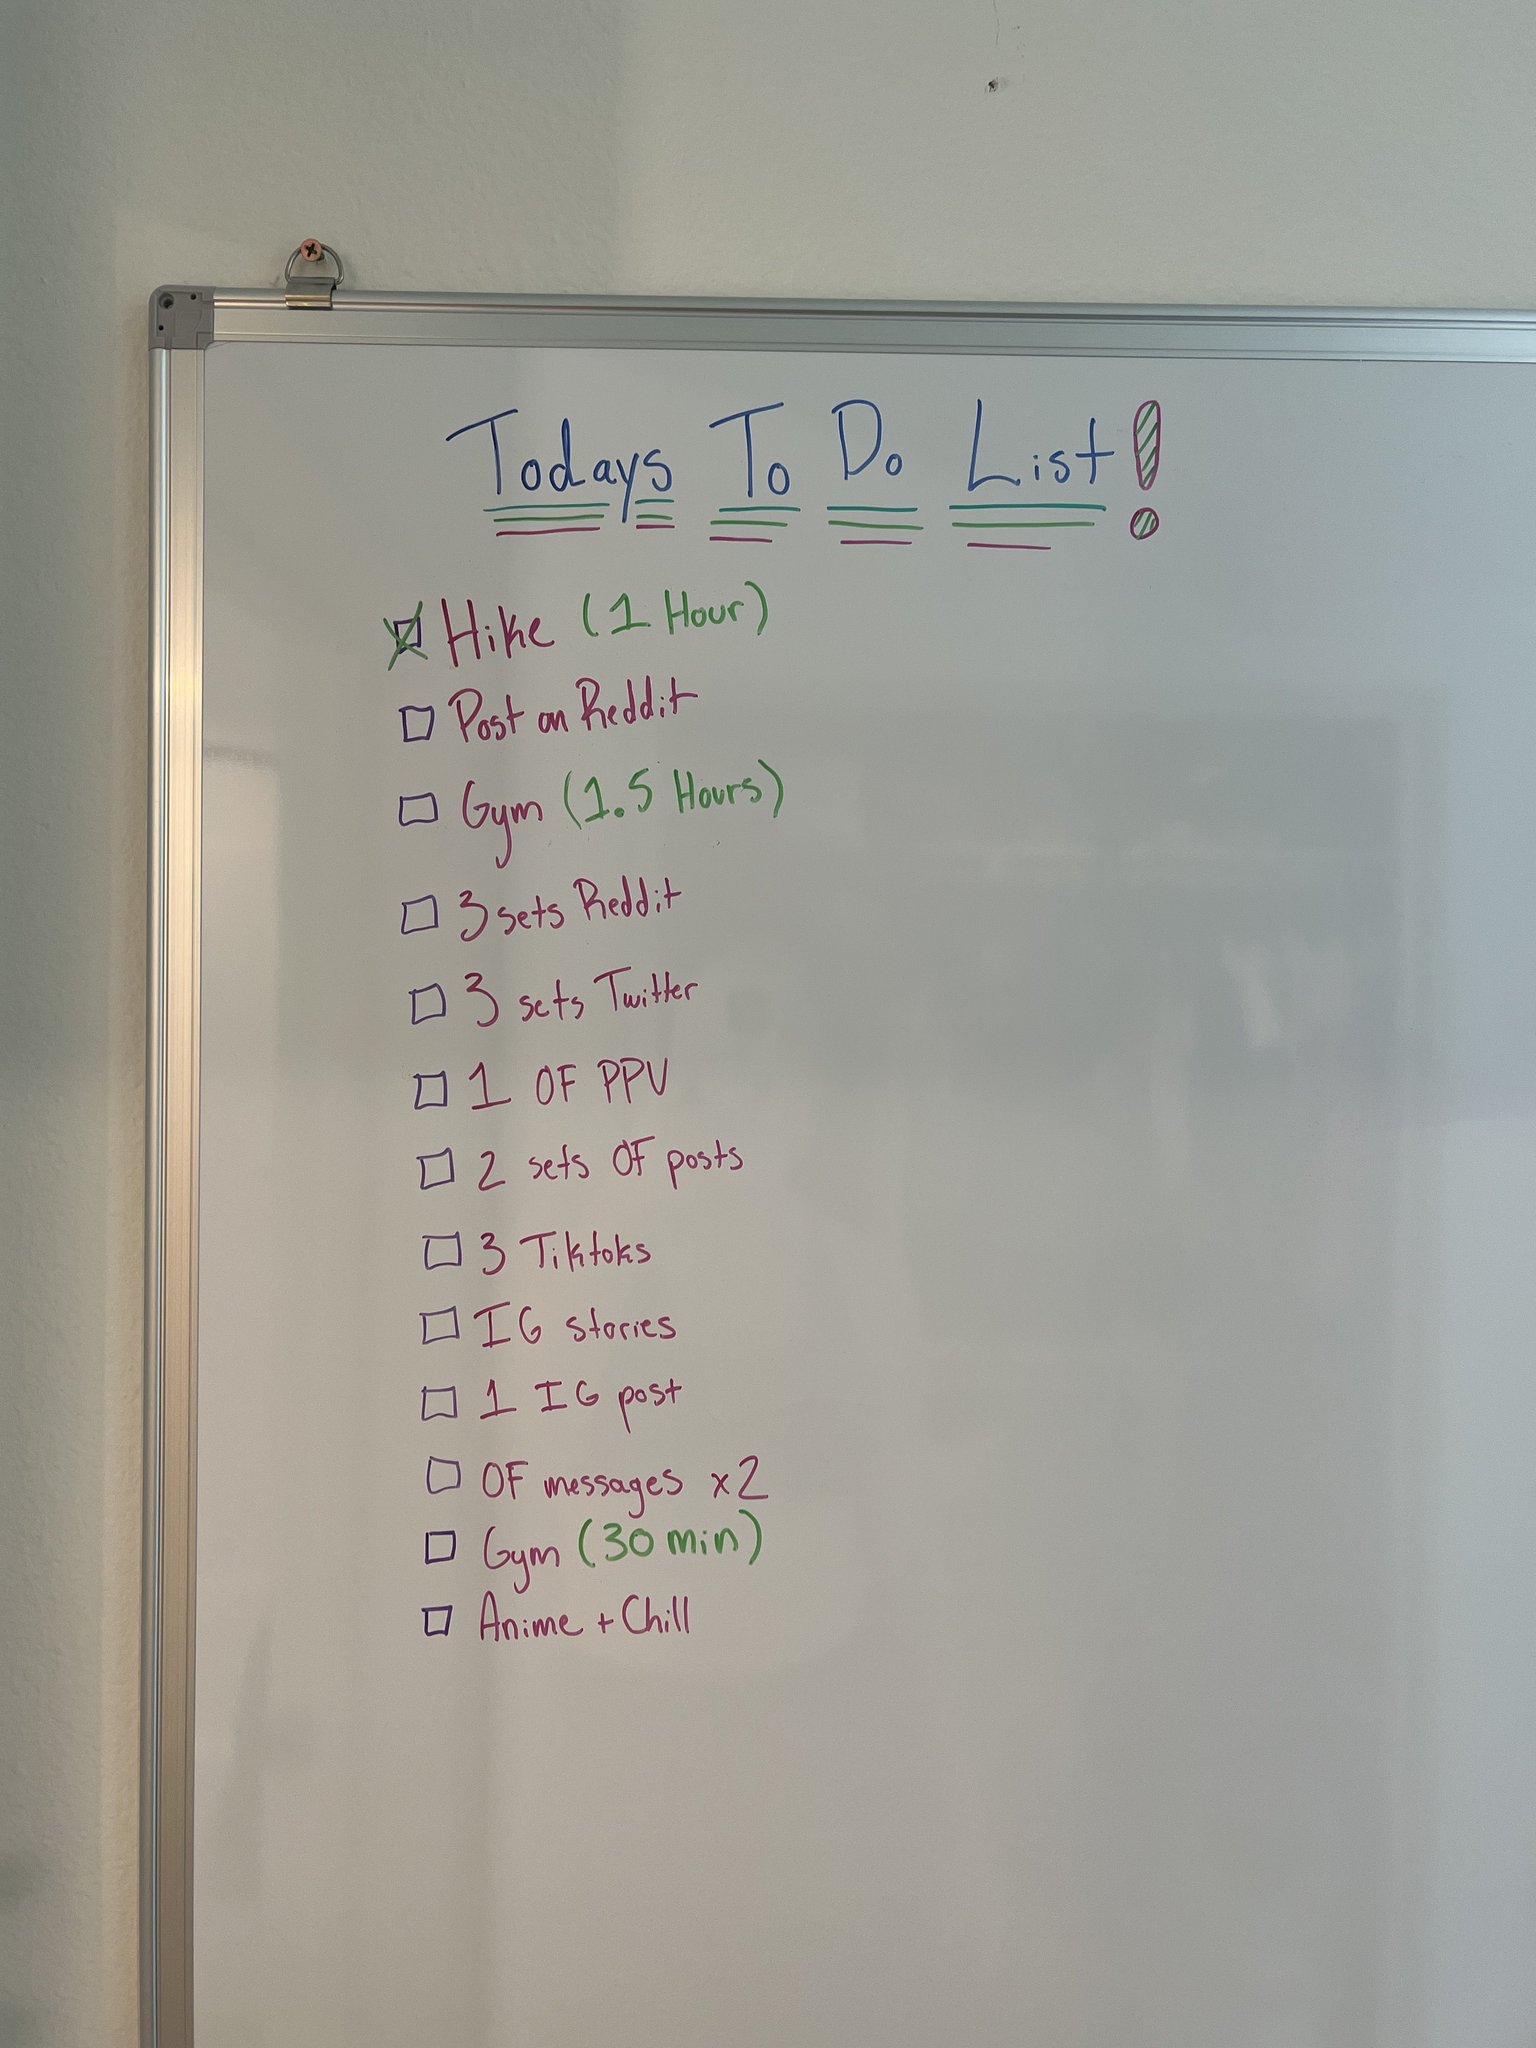 Todays To Do List!
Hike (1 Hour)
Post on Reddit
Gym (1.5 Hours)
3 sets Reddit
3 sets Twitter
1 OF PPV
2 sets OF posts
3 Tiktoks
IG stories
1 IG post
OF messages x2
Gym (30 min)
Anime + Chill